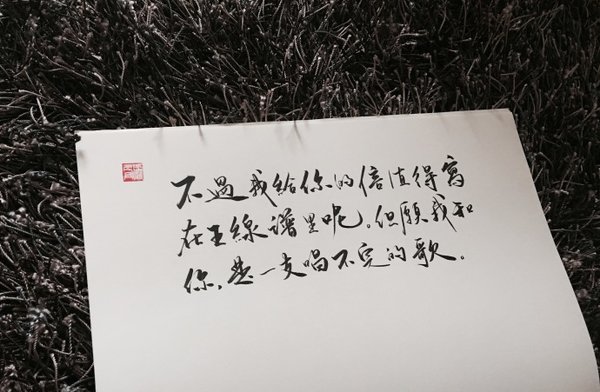 不過我給你的信值得寫
在五線譜里呢。但願我和
你，是一支唱不完的歌。